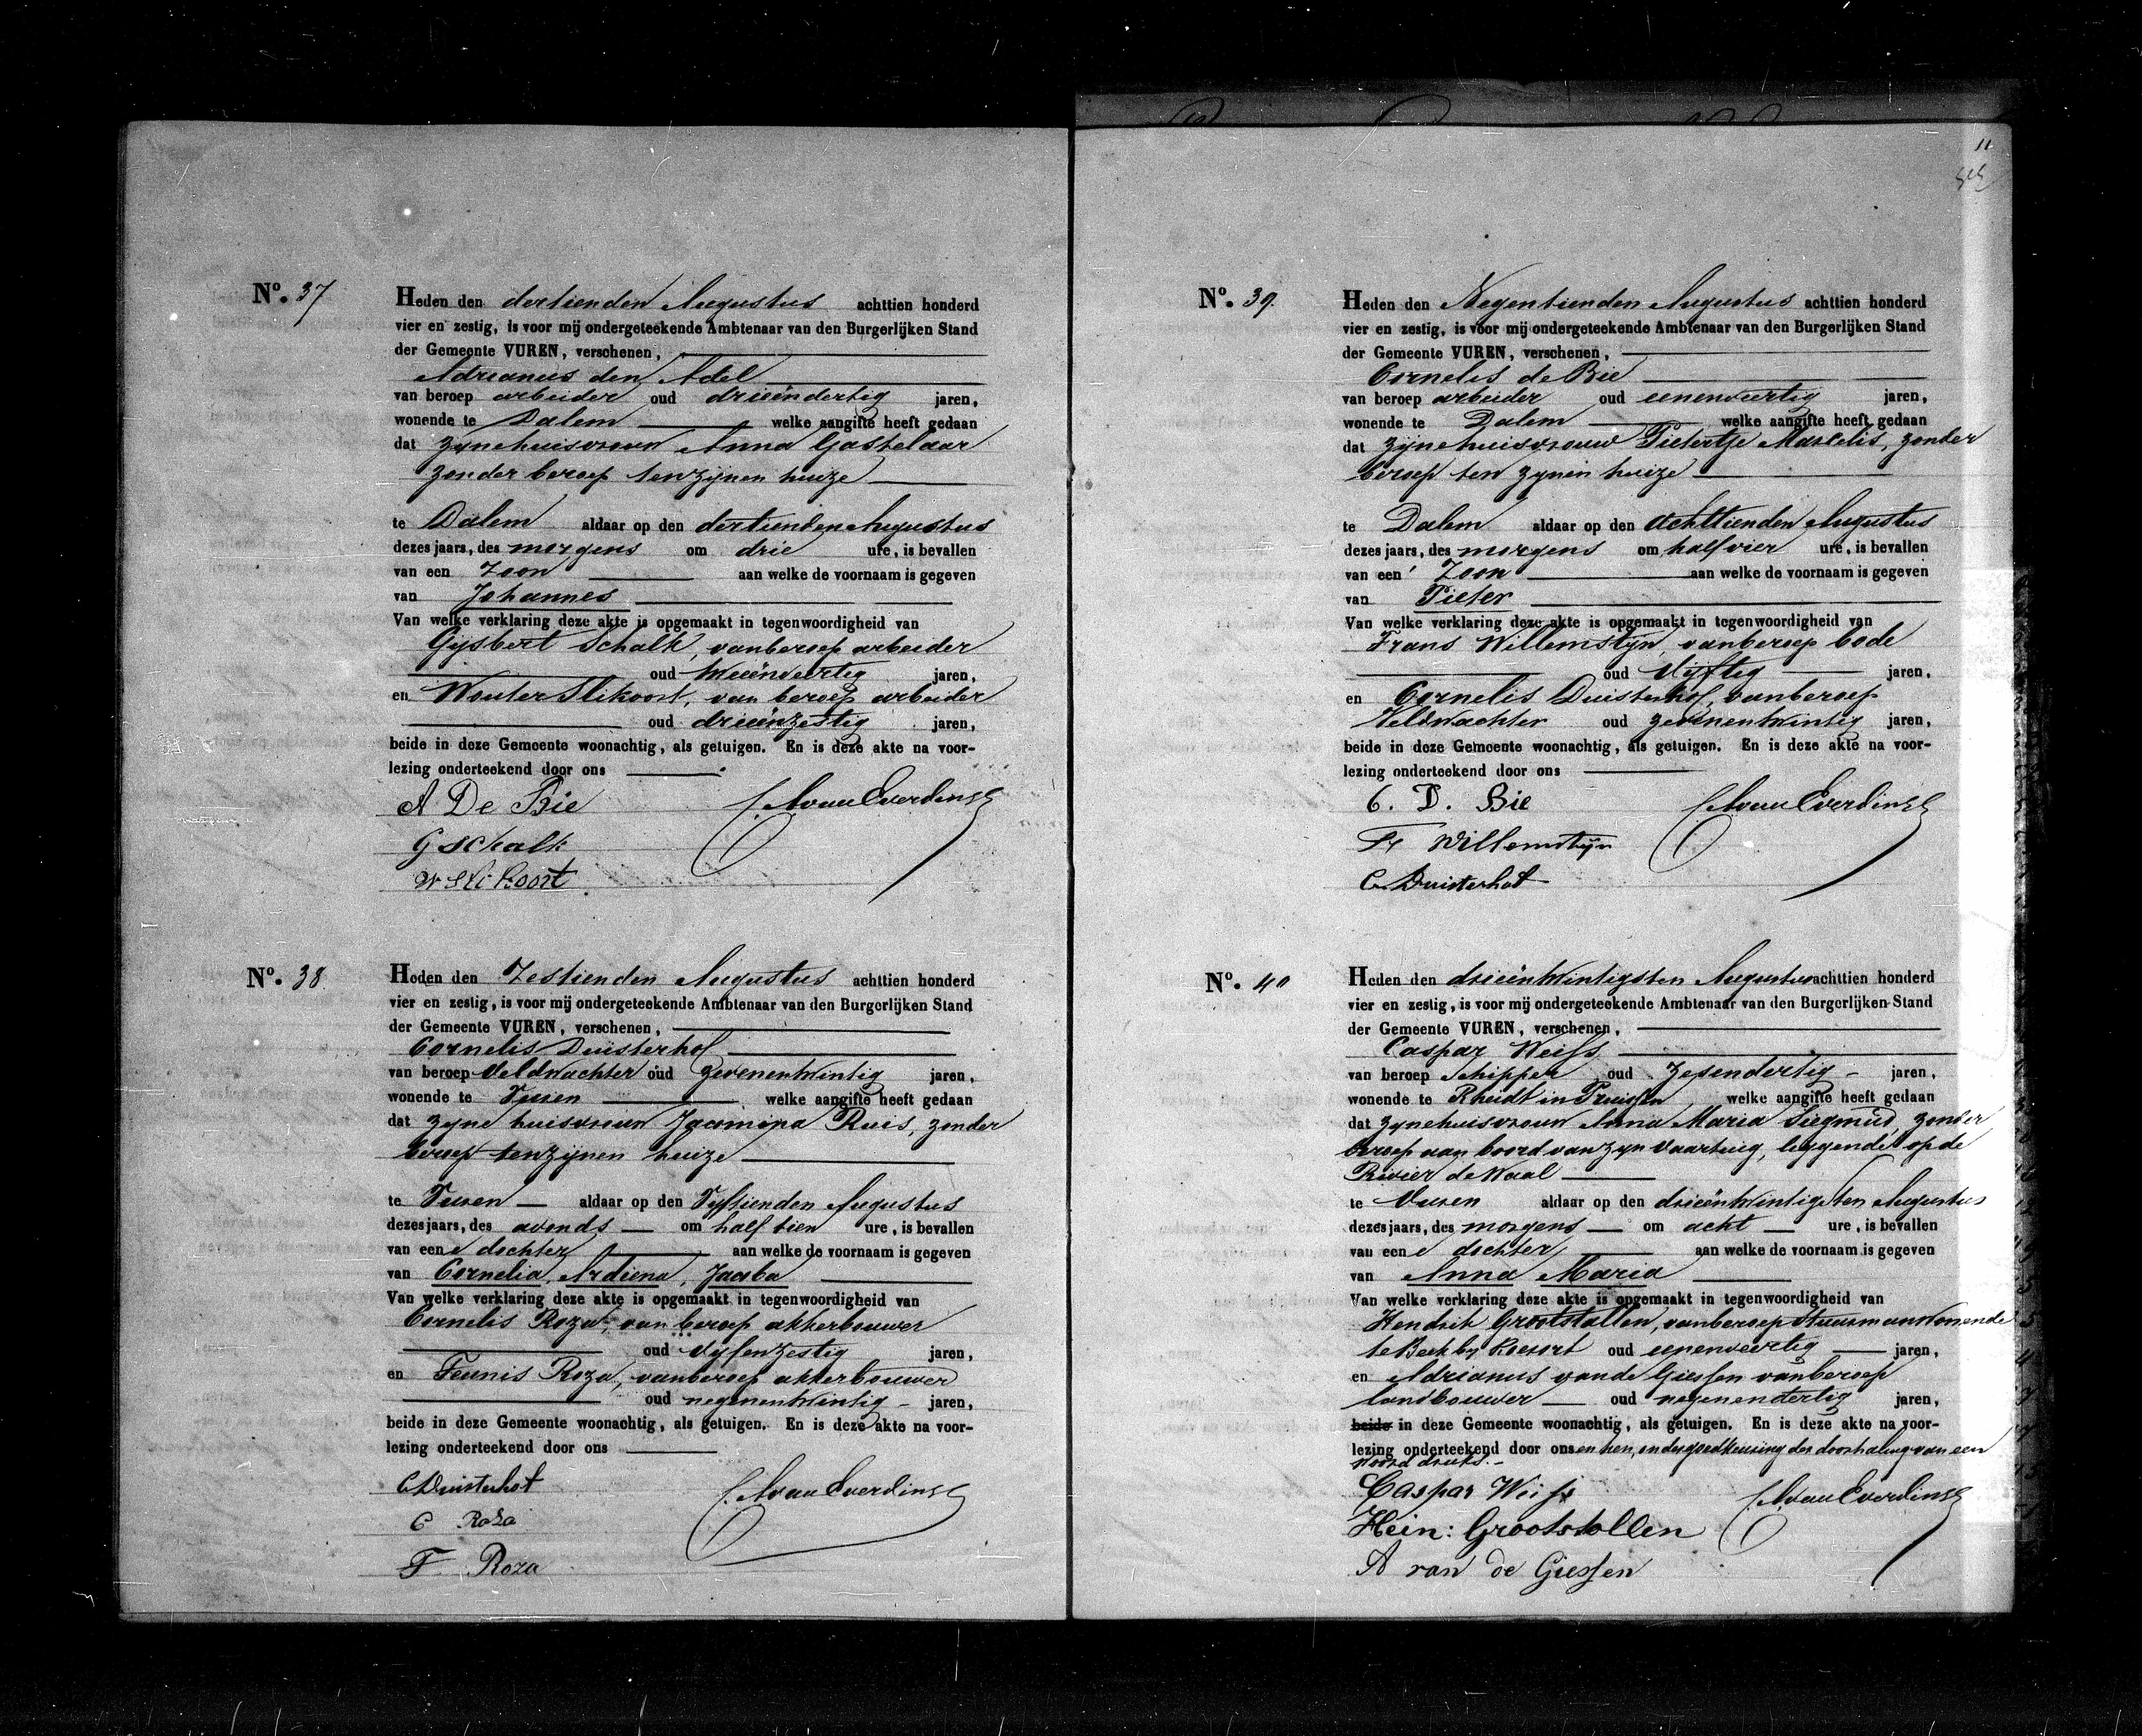 No. 37
Heden den dertienden Augustus achttien honderd
vier en zestig, is voor mij ondergeteekende Ambtenaar van den Burgerlijken Stand
der Gemeente VUREN, verschenen,
Adrianus den Adel
van beroep arbeider oud drieëndertig jaren,
wonende te Dalem welke aangifte heeft gedaan
dat zijne huisvrouw Anna Gastelaar
zonder beroep ten zijnen huize
te Dalem aldaar op den dertienden Augustus
dezes jaars, des morgens om drie ure, is bevallen
van een Zoon aan welke de voornaam is gegeven
van Johannes
Van welke verklaring deze akte is opgemaakt in tegenwoordigheid van
Gijsbert Schalk, van beroep arbeider
oud tweeënveertig jaren,
en Wouter Slikoort, van beroep arbeider
oud drieënzestig jaren,
beide in deze Gemeente woonachtig, als getuigen. En is deze akte na voor-
lezing onderteekend door ons
A De Bie
G Schalk
W Slikoort
No. 38
Heden den Zestienden Augustus achttien honderd
vier en zestig, is voor mij ondergeteekende Ambtenaar van den Burgerlijken Stand
der Gemeente VUREN, verschenen,
Cornelis Duisterhof
van beroep Veldwachter oud zevenentwintig jaren,
wonende te Vuren welke aangifte heeft gedaan
dat zijne huisvrouw Jacomina Ruis, zonder
beroep ten zijnen huize
te Vuren aldaar op den Vijftienden Augustus
dezes jaars, des avonds om half tien ure, is bevallen
van eene dochter aan welke de voornaam is gegeven
van Cornelia, Ardiena, Jacoba
Van welke verklaring deze akte is opgemaakt in tegenwoordigheid van
Cornelis Roza, van beroep akkerbouwer
oud vijfenzestig jaren,
en Teunis Roza, van beroep akkerbouwer
oud negenentwintig jaren,
beide in deze Gemeente woonachtig, als getuigen. En is deze akte na voor-
lezing onderteekend door ons
C Duisterhof
C Roza
T Roza
11
No. 39.
Heden den Negentienden Augustus achttien honderd
vier en zestig, is voor mij ondergeteekende Ambtenaar van den Burgerlijken Stand
der Gemeente VUREN, verschenen,
Cornelis de Bie
van beroep arbeider oud eenenveertig jaren,
wonende te Dalem welke aangifte heeft gedaan
dat zijne huisvrouw Pietertje Marcelis, zonder
beroep ten zijnen huize
te Dalem aldaar op den Achttienden Augustus
dezes jaars, des morgens om half vier ure, is bevallen
van een Zoon aan welke de voornaam is gegeven
van Pieter
Van welke verklaring deze akte is opgemaakt in tegenwoordigheid van
Frans Willemstijn, van beroep bode
oud Vijftig jaren,
en Cornelis Duisterhof, van beroep
Veldwachter oud zevenentwintig jaren,
beide in deze Gemeente woonachtig, als getuigen. En is deze akte na voor-
lezing onderteekend door ons
C. D. Bie
Fr Willemstijn
C Duisterhof
No. 40
Heden den drieëntwintigsten Augustus achttien honderd
vier en zestig, is voor mij ondergeteekende Ambtenaar van den Burgerlijken Stand
der Gemeente VUREN, verschenen,
Caspar Weiss
van beroep Schipper oud zesendertig jaren,
wonende te Rheidt in Pruissen welke aangifte heeft gedaan
dat zijne huisvrouw Anna Maria Siegmud, zonder
beroep aan boord van zijn vaartuig, leggende op de
Rivier de Waal
te Vuren aldaar op den drieëntwintigsten Augustus
dezes jaars, des morgens om acht ure, is bevallen
van eene dochter aan welke de voornaam is gegeven
van Anna Maria
Van welke verklaring deze akte is opgemaakt in tegenwoordigheid van
Hendrik Grootstollen, van beroep Stuurman wonende
te Beek bij oud eenenveertig jaren,
en Adrianus van de Giessen van beroep
landbouwer oud negenendertig jaren,
beide in deze Gemeente woonachtig, als getuigen. En is deze akte na voor-
lezing onderteekend door ons en hen, onder goedkeuring der doorhaling van een
woord druks.
Caspar Weiss
Hein: Grootstollen
A van de Giessen